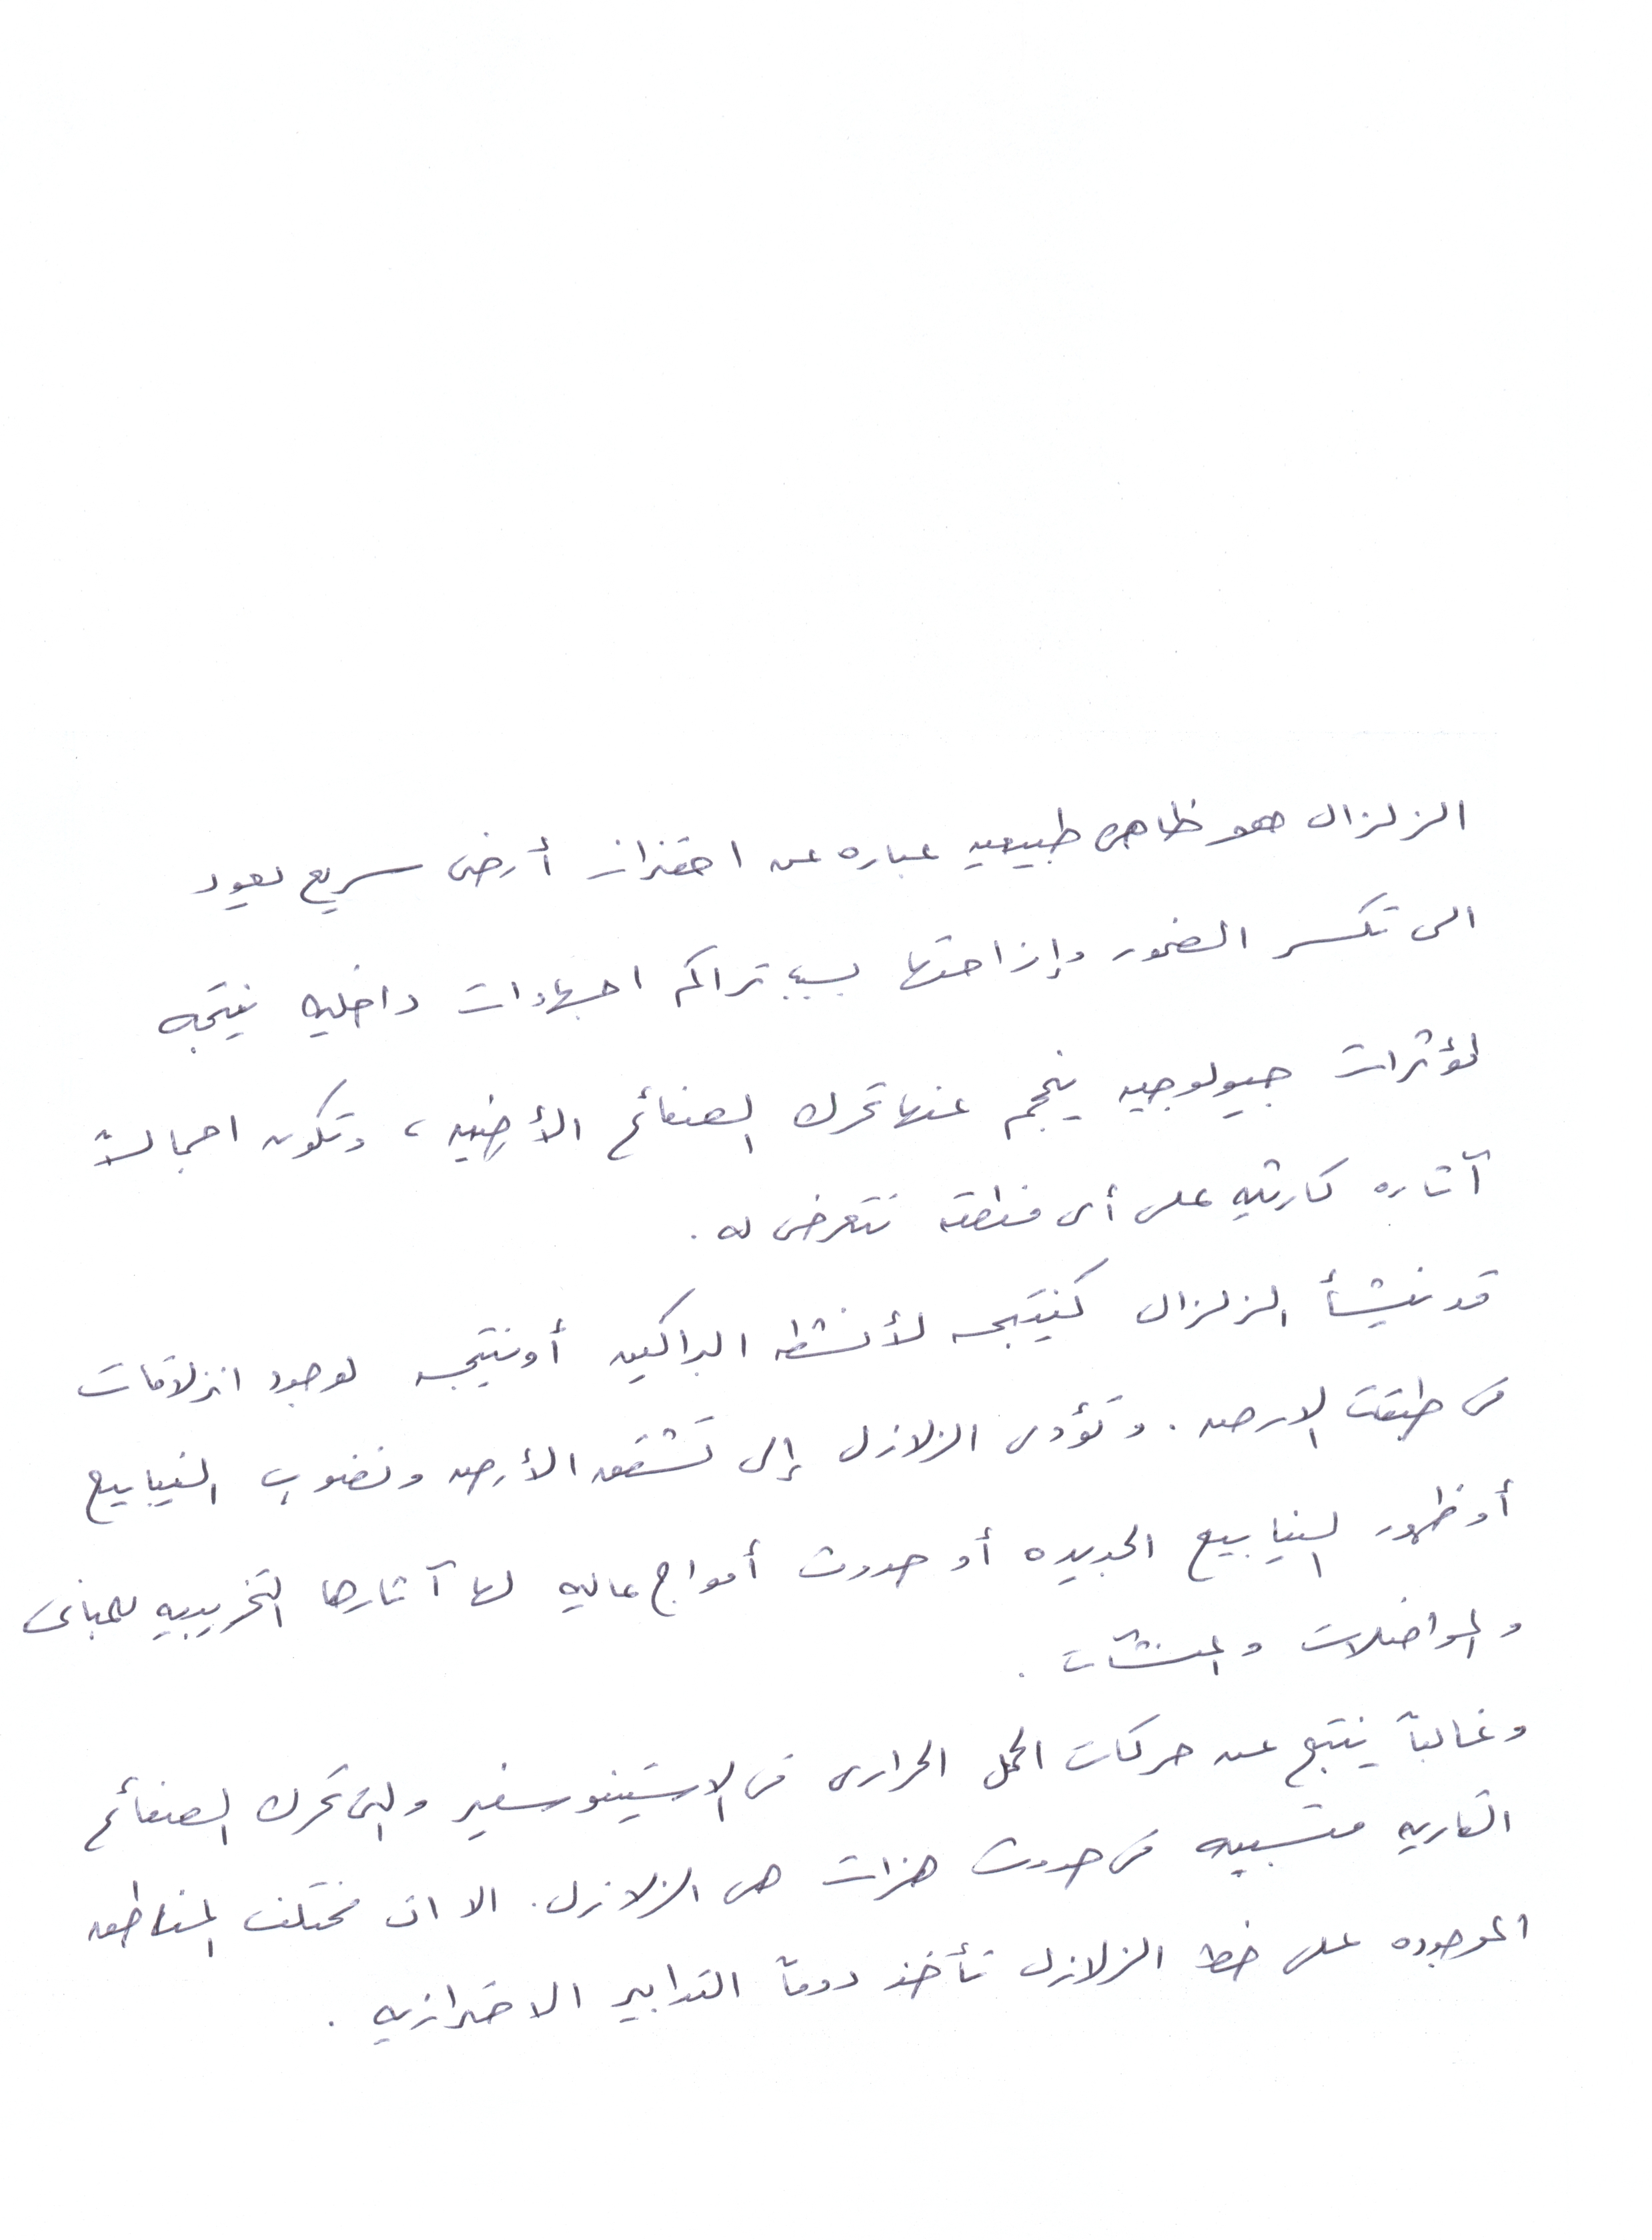 الزلزال هو ظاهره طبيعيه عباره عن اهتزاز أرضى سريع يعود
الى تكسر الصخور وإزاحتها بسبب تراكم اجهادات داخليه نتيجه
لمؤثرات جيولوجيه ينجم عنها تحرك الصفائح الأرضيه ، وتكون اجمالاً
آثاره كارثيه على أى منطقه تتعرض له .
قد ينشأ الزلزال كنتيجه لأنشطه البراكين أو نتيجه لوجود انزلاقات
فى طبقات الارض . وتؤدى الزلازل إلى تشقق الأرض ونضوب الينابيع
أو ظهور الينابيع الجديده أو حدوث أمواج عاليه لها آثارها التخريبيه للمبانى
والمواصلات والمنشآت .
وغالباً ينتج عن حركات الحمل الحرارى فى الاستينوسفير والتى تحرك الصفائح
القاريه متسببه فى حدوث هزات هى الزلازل . الا ان مختلف المناطق
الموجوده على خط الزلازل تأخذ دوماً التدابير الاحترازيه .